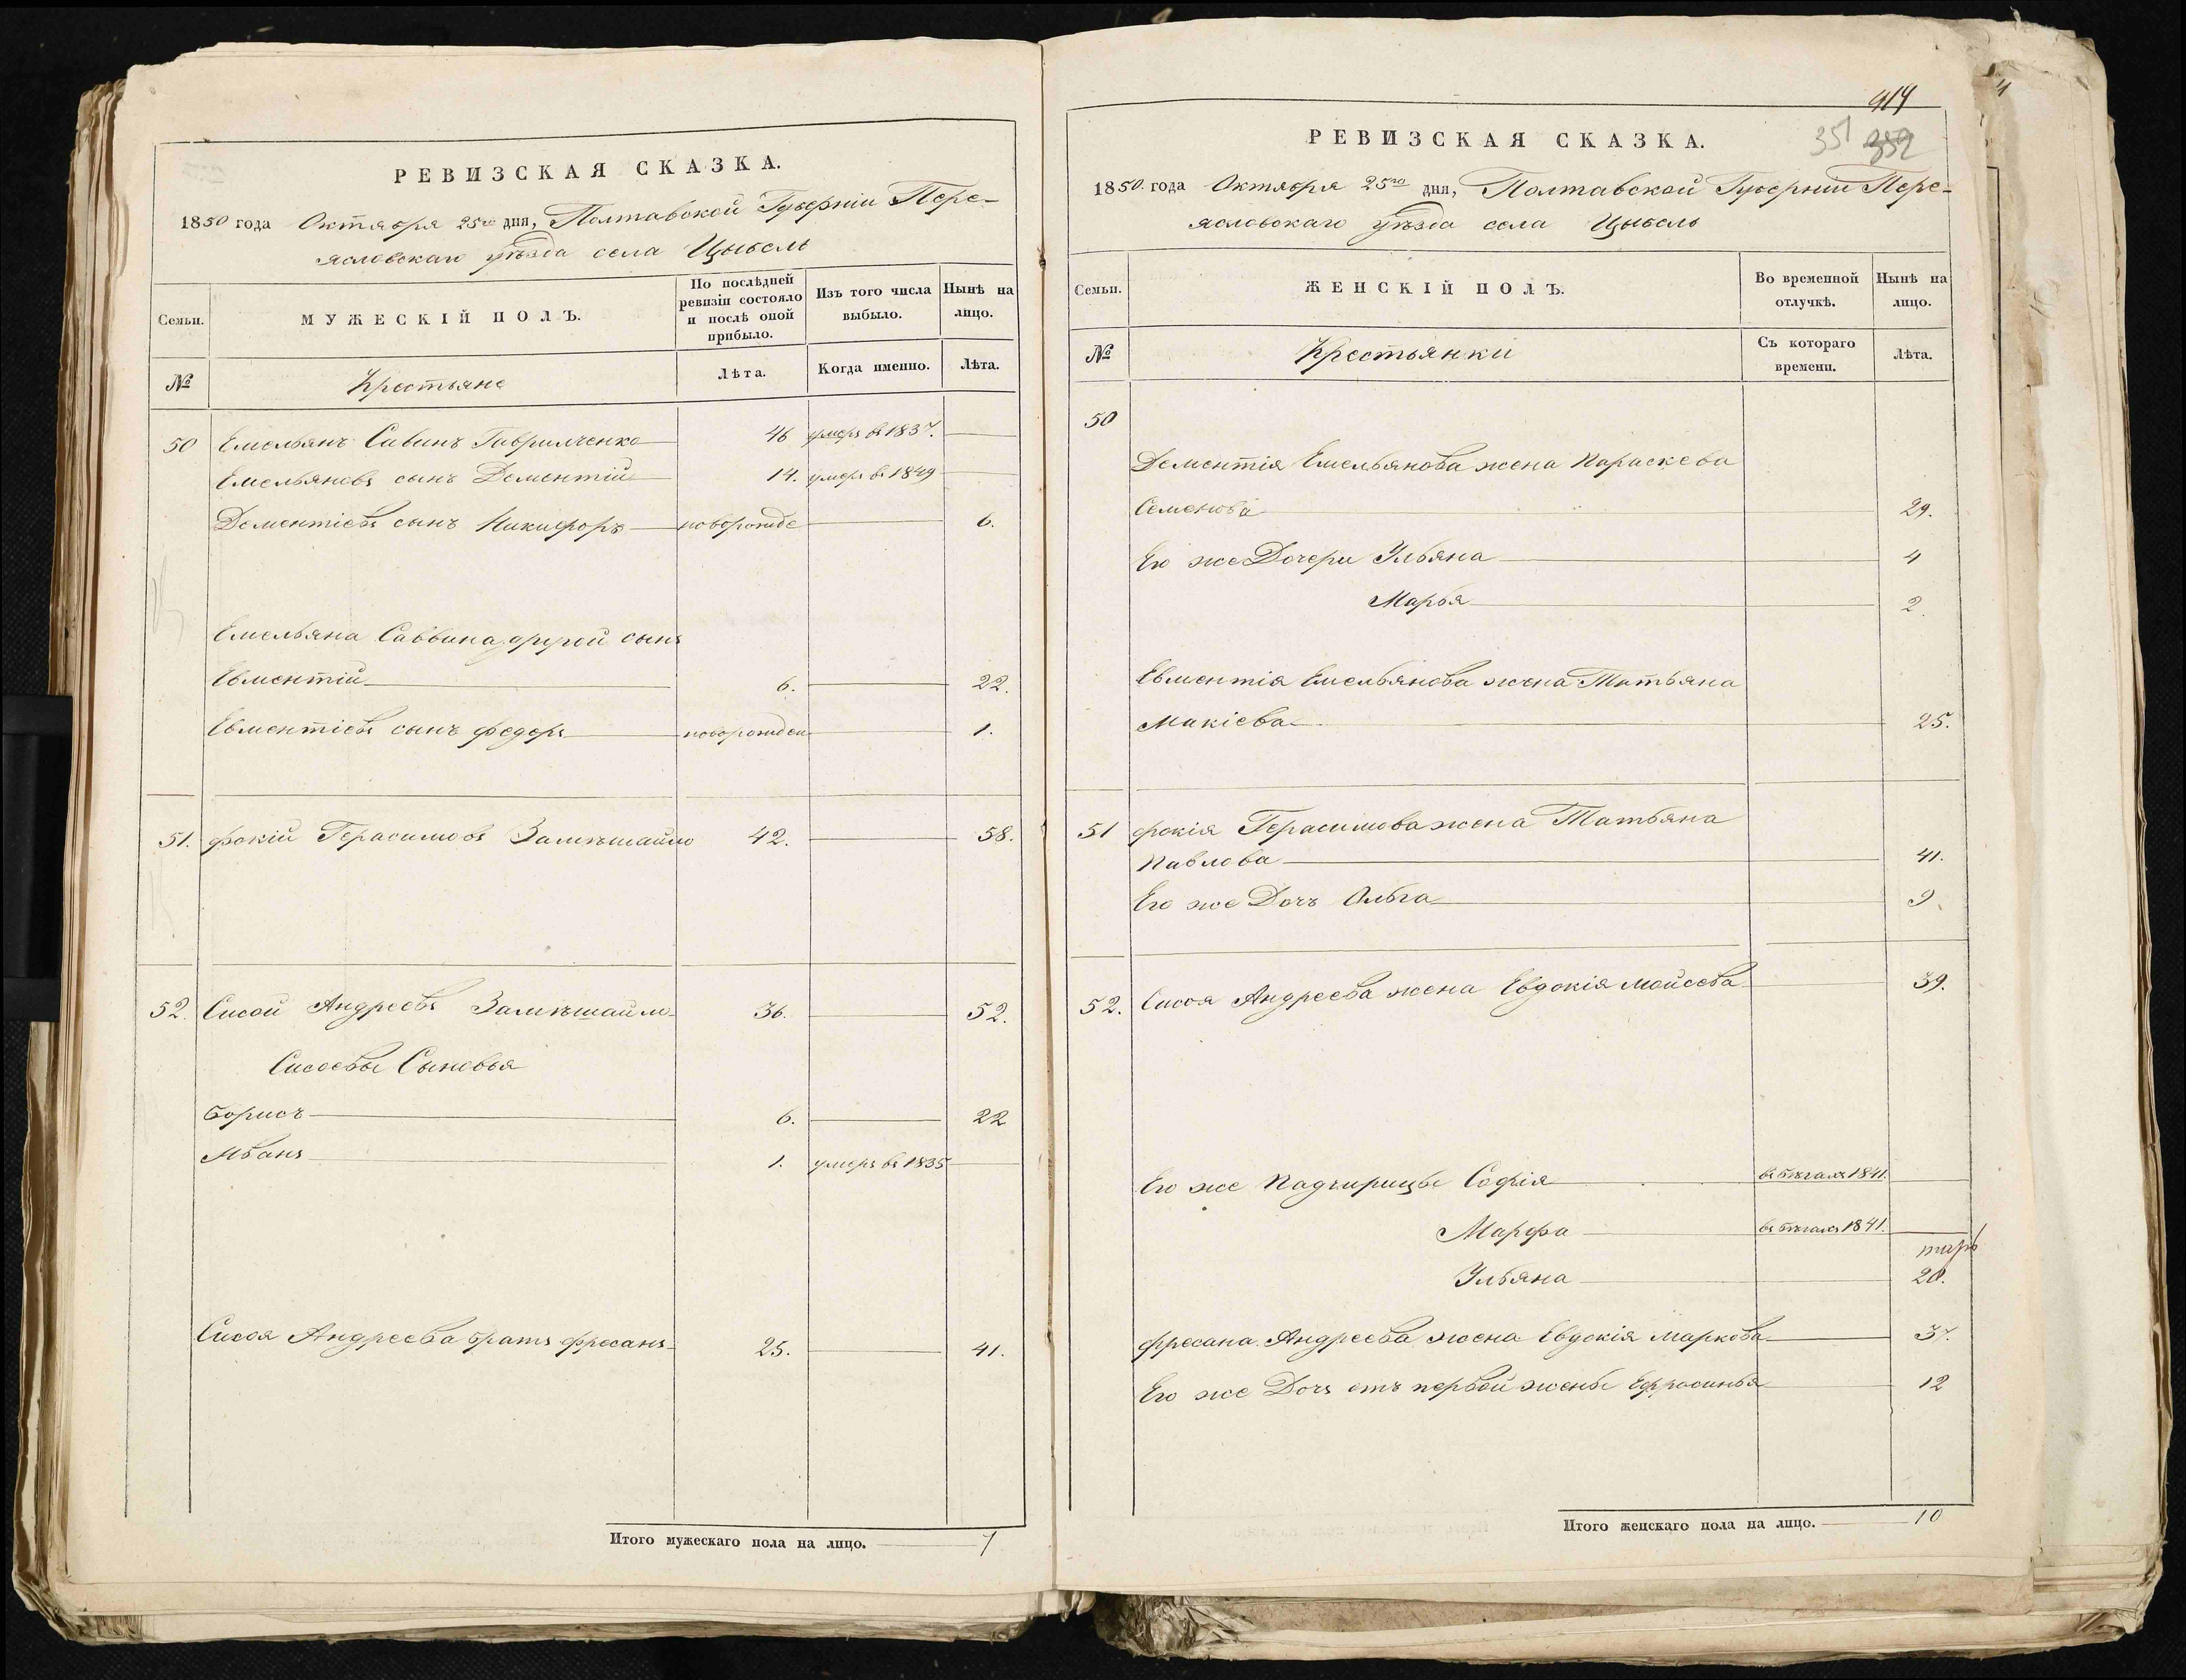 РЕВИЗСКАЯ СКАЗКА.
1850 года Октября 25го дня, Полтавской Губерніи Пере-
яславскаго уѣзда села Цыбель
Семьи.
МУЖЕСКІЙ ПОЛЪ.
По послѣдней ревизіи состояло и послѣ оной прибыло.
Изъ того числа выбыло.
Нынѣ на лицо.
№
Крестьяне
Лѣта.
Когда именно.
Лѣта.
50 Емельянъ Савинъ Гавриленко 46 умеръ въ 1837.
Емельяновъ сынъ Дементій 14. умеръ въ 1849
Дементіевъ сынъ Никифоръ новорожде 6.
Емельяна Саввина другой сынъ
Евментій 6. 22.
Евментіевъ сынъ Федоръ новорожден 1.
51. Фокій Герасимовъ Замѣшайло 42. 58.
52. Сисой Андреевъ Замѣшайло 36. 52.
Сисоевы Сыновья
Борисъ 6. 22
Иванъ 1. умеръ въ 1835
Сисоя Андреева братъ Фресанъ 25. 41.
Итого мужескаго пола на лицо. 7
414
351 352
РЕВИЗСКАЯ СКАЗКА.
1850 года Октября 25го дня, Полтавской Губерніи Пере-
яславскаго уѣзда села Цыбель
Семьи.
ЖЕНСКІЙ ПОЛЪ.
Во временной отлучкѣ.
Нынѣ на лицо.
№
Крестьянки
Съ котораго времени.
Лѣта.
50
Дементія Емельянова жена Параскева
Семенова 29.
Его же Дочери Ульяна 4
Марья 2.
Евментія Емельянова жена Татьяна
Макіева 25.
51 Фокія Герасимова жена Татьяна
Павлова 41.
Его же Дочь Ольга 9.
52. Сисоя Андреева жена Евдокія Мойсева 39.
Его же Падчирицы Софія въ бѣгахъ 1841.
Марфа въ бѣгахъ 1841.
Ульяна 20.
Фресана Андреева жена Евдокія Маркова 37.
Его же Дочь отъ первой жены Ефросинья 12
Итого женскаго пола на лицо. 10